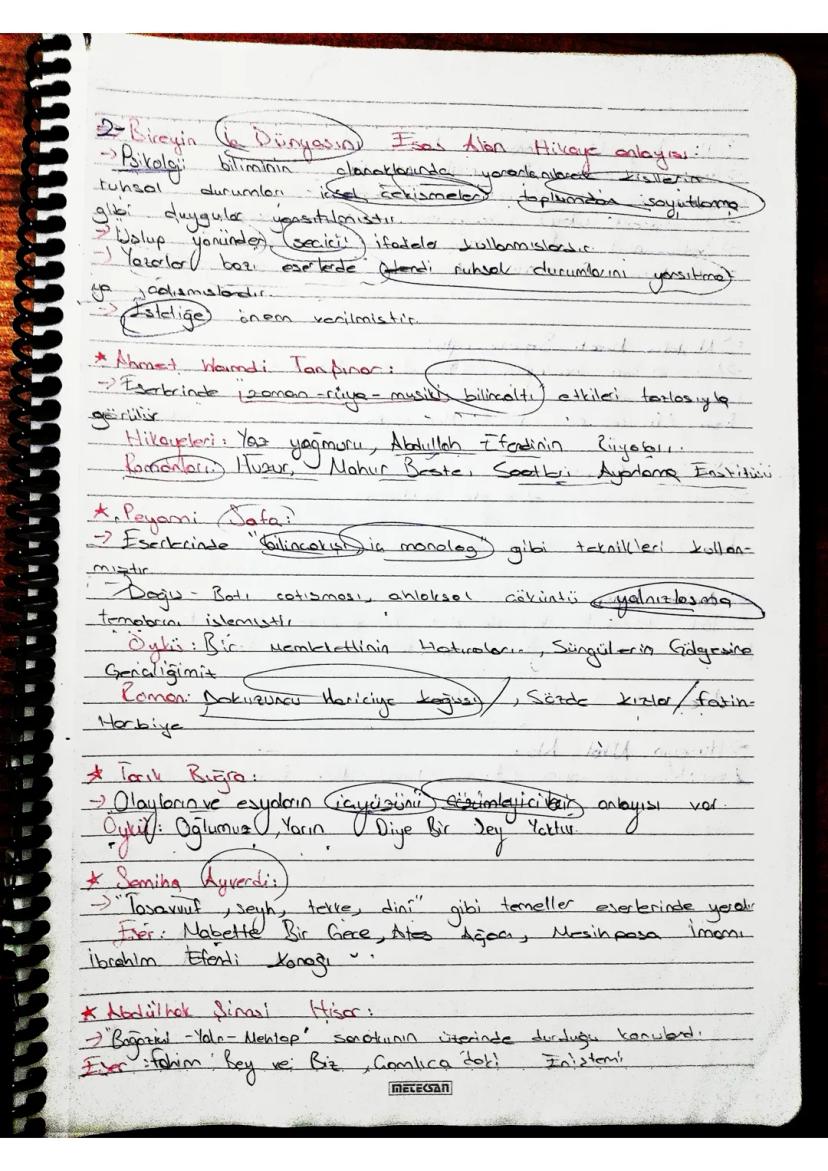 2- Bireyin İç Dünyasını Esas Alan Hikaye anlayışı:
→ Psikoloji biliminin olanaklarında yararlanılarak kişilerin
ruhsal durumları içsel çekişmeleri toplumdan soyutlanma
gibi duygular yansıtılmıştır.
→ Üslup yönünden seçici ifadeler kullanmışlardır.
→ Yazarlar bazı eserlerde kendi ruhsal durumlarını yansıtma
ya çalışmışlardır.
→ Estetiğe önem verilmiştir.
* Ahmet Hamdi Tanpınar:
→ Eserlerinde "zaman - rüya - musiki bilinçaltı etkileri fazlasıyla
görülür
Hikayeleri: Yaz yağmuru, Abdullah Efendinin Rüyaları.
Romanları: Huzur, Mahur Beste, Saatleri Ayarlama Enstitüsü
* Peyami Safa:
→ Eserlerinde "bilinçakışı iç monolog" gibi teknikleri kullan-
mıştır.
→ Doğu - Batı çatışması, ahlaksal çöküntü yalnızlaşma
temalarını işlemiştir
Öykü: Bir Memleketlinin Hatıraları, Süngülerin Gölgesine
Gençliğimiz
Roman: Dokuzuncu Hariciye Koğuşu/, Sözde Kızlar/ fatih-
Harbiye
* Tarık Buğra:
→ Olayların ve eşyaların içyüzünü çözümleyici bir anlayışı var.
Öykü: Oğlumuz, Yarın Diye Bir Şey Yoktur.
* Samiha Ayverdi:
→ "Tasavvuf, şeyh, tekke, dini" gibi temeller eserlerinde yeralır
Eser: Mabette Bir Gece, Ateş Ağacı, Mesihpaşa İmamı
İbrahim Efendi Konağı
* Abdülhak Şinasi Hisar:
→ "Boğaziçi - Yalı - Mehtap" sanatının üzerinde durduğu konulardı.
Eser: Fahim Bey ve Biz, Çamlıca'daki Eniştemi
METEKSAN